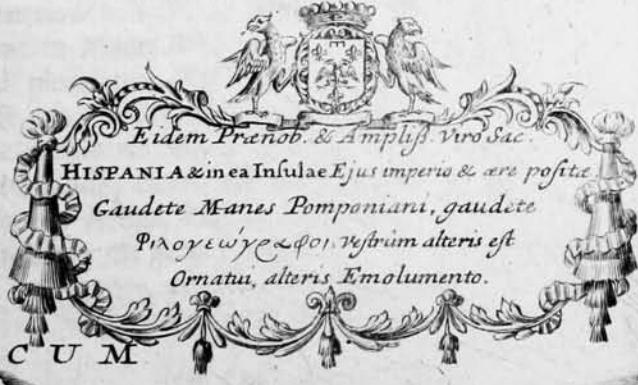 Eidem Prænob. & Ampliſs. Viro Sac.
HISPANIA & in ea Inſulae Ejus imperio & ære poſitæ.
Gaudete Manes Pomponiani, gaudete
Φιλογεωγραφοι, veſtrûm alteris eſt
Ornatui, alteris Emolumento.
CUM